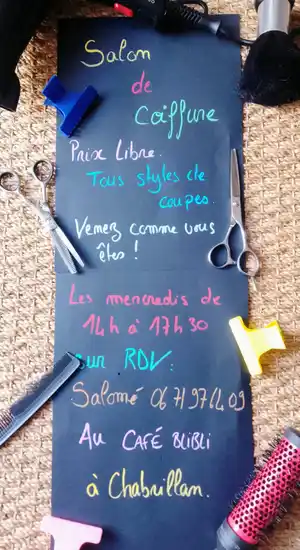 Salon
de
Coiffure
Prix Libre.
Tous styles de
coupes.
Venez comme vous
êtes !
Les mercredis de
14h à 17h30
sur RDV:
Salomé 06 71 97 14 09
Au CAFÉ BLIBLI
à Chabrillan.